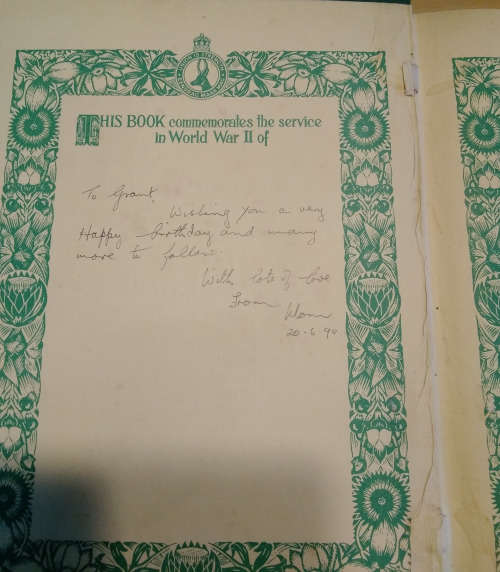 THIS BOOK commemorates the service
in World War II of
To Grant,
Wishing you a very
Happy Birthday and many
more to follow.
With lots of love
From
20-6-90